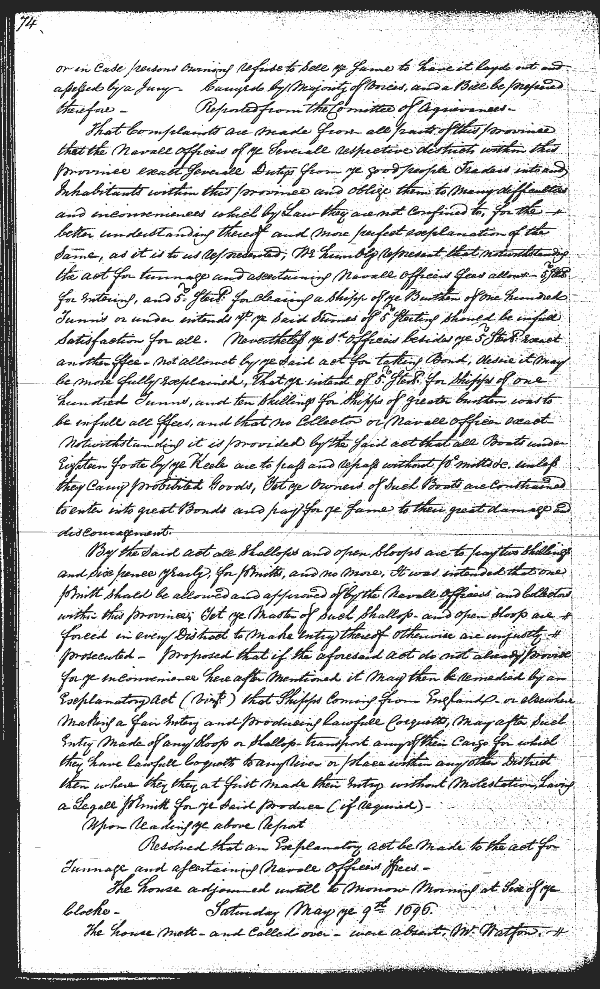 74
or in Case persons owning refuse to Sell ye Same to have it layd out and
assessed by a Jury - Carryed by Majority of Voices, and a Bill be prepared
therefore - Reported from the Comittee of Agrievances -
That Complaints are made from all parts of this province
that the Navall Officers of ye Severall respective districts within this
province exact Severall Dutys from ye good people Traders into and
Inhabitants within this province and oblige them to Many difficulties
and inconveniences which by Law they are not Confined to, for the
better understanding thereof and more perfect explanation of the
Same, as it is to us represented, We humbly represent that notwithstanding
the act for tunnage and ascertaining Navall Officers fees allows 5s Sterl
for Entering, and 5s Sterl for Clearing a Shipp of ye Burthen of One hundred
Tunns or under intends yt ye Said Summes of 5s Sterling Should be in full
Satisfaction for all. Neverthelesse ye Sd Officers besides ye 5s Sterl exact
another ffee - not allowed by ye Said act for taking Bond, desire it may
be more fully explained, That ye intent of 5s Sterl for Shipps of one
hundred Tunns, and ten Shillings for Shipps of greater burthen was to
be in full all ffees, and that no Collector or Navall Officer exact
Notwithstanding it is provided by the Said act that all Boats under
Eighteen foote by ye Keele are to pass and repass without permitts &c. unless
they Carry prohibited Goods, Yet ye Owners of Such Boats are Constrained
to enter into great Bonds and pay for ye Same to their great damage and
discouragement.
By the Said act all Shallops and open Sloops are to pay two Shillings
and Six pence yearly, for permitts, and no more, It was intended that one
permitt should be allowed and approved of by the Navall Officers and Collectors
within this province; Yet ye Master of Such Shallop - and open Sloop are
forced in every District to Make entry thereof otherwise are unjustly
prosecuted - proposed that if the aforesaid Act do not already provide
for ye inconvenience here after Mentioned it May then be remedied by an
Explanatory Act (vizt) that Shipps Coming from England - or elsewhere
making a fair Entry and producing Lawfull Cocquetts, May after Such
Entry Made of any Sloop or Shallop - transport any of their Cargo for which
they have lawfull Coquetts to any river or place within any other District
then where they they at first made their Entry without Molestation, having
a Legall permitt for ye Said produce (if required) -
Upon reading ye above report
Resolved that an Explanatory act be made to the act for
Tunnage and ascertaining Navall Officers ffees -
The house adjourned untill to Morrow Morning at Six of ye
Clocke - Saturday May ye 9th 1696.
The house mett - and Called over - were absent, Mr. Watson,